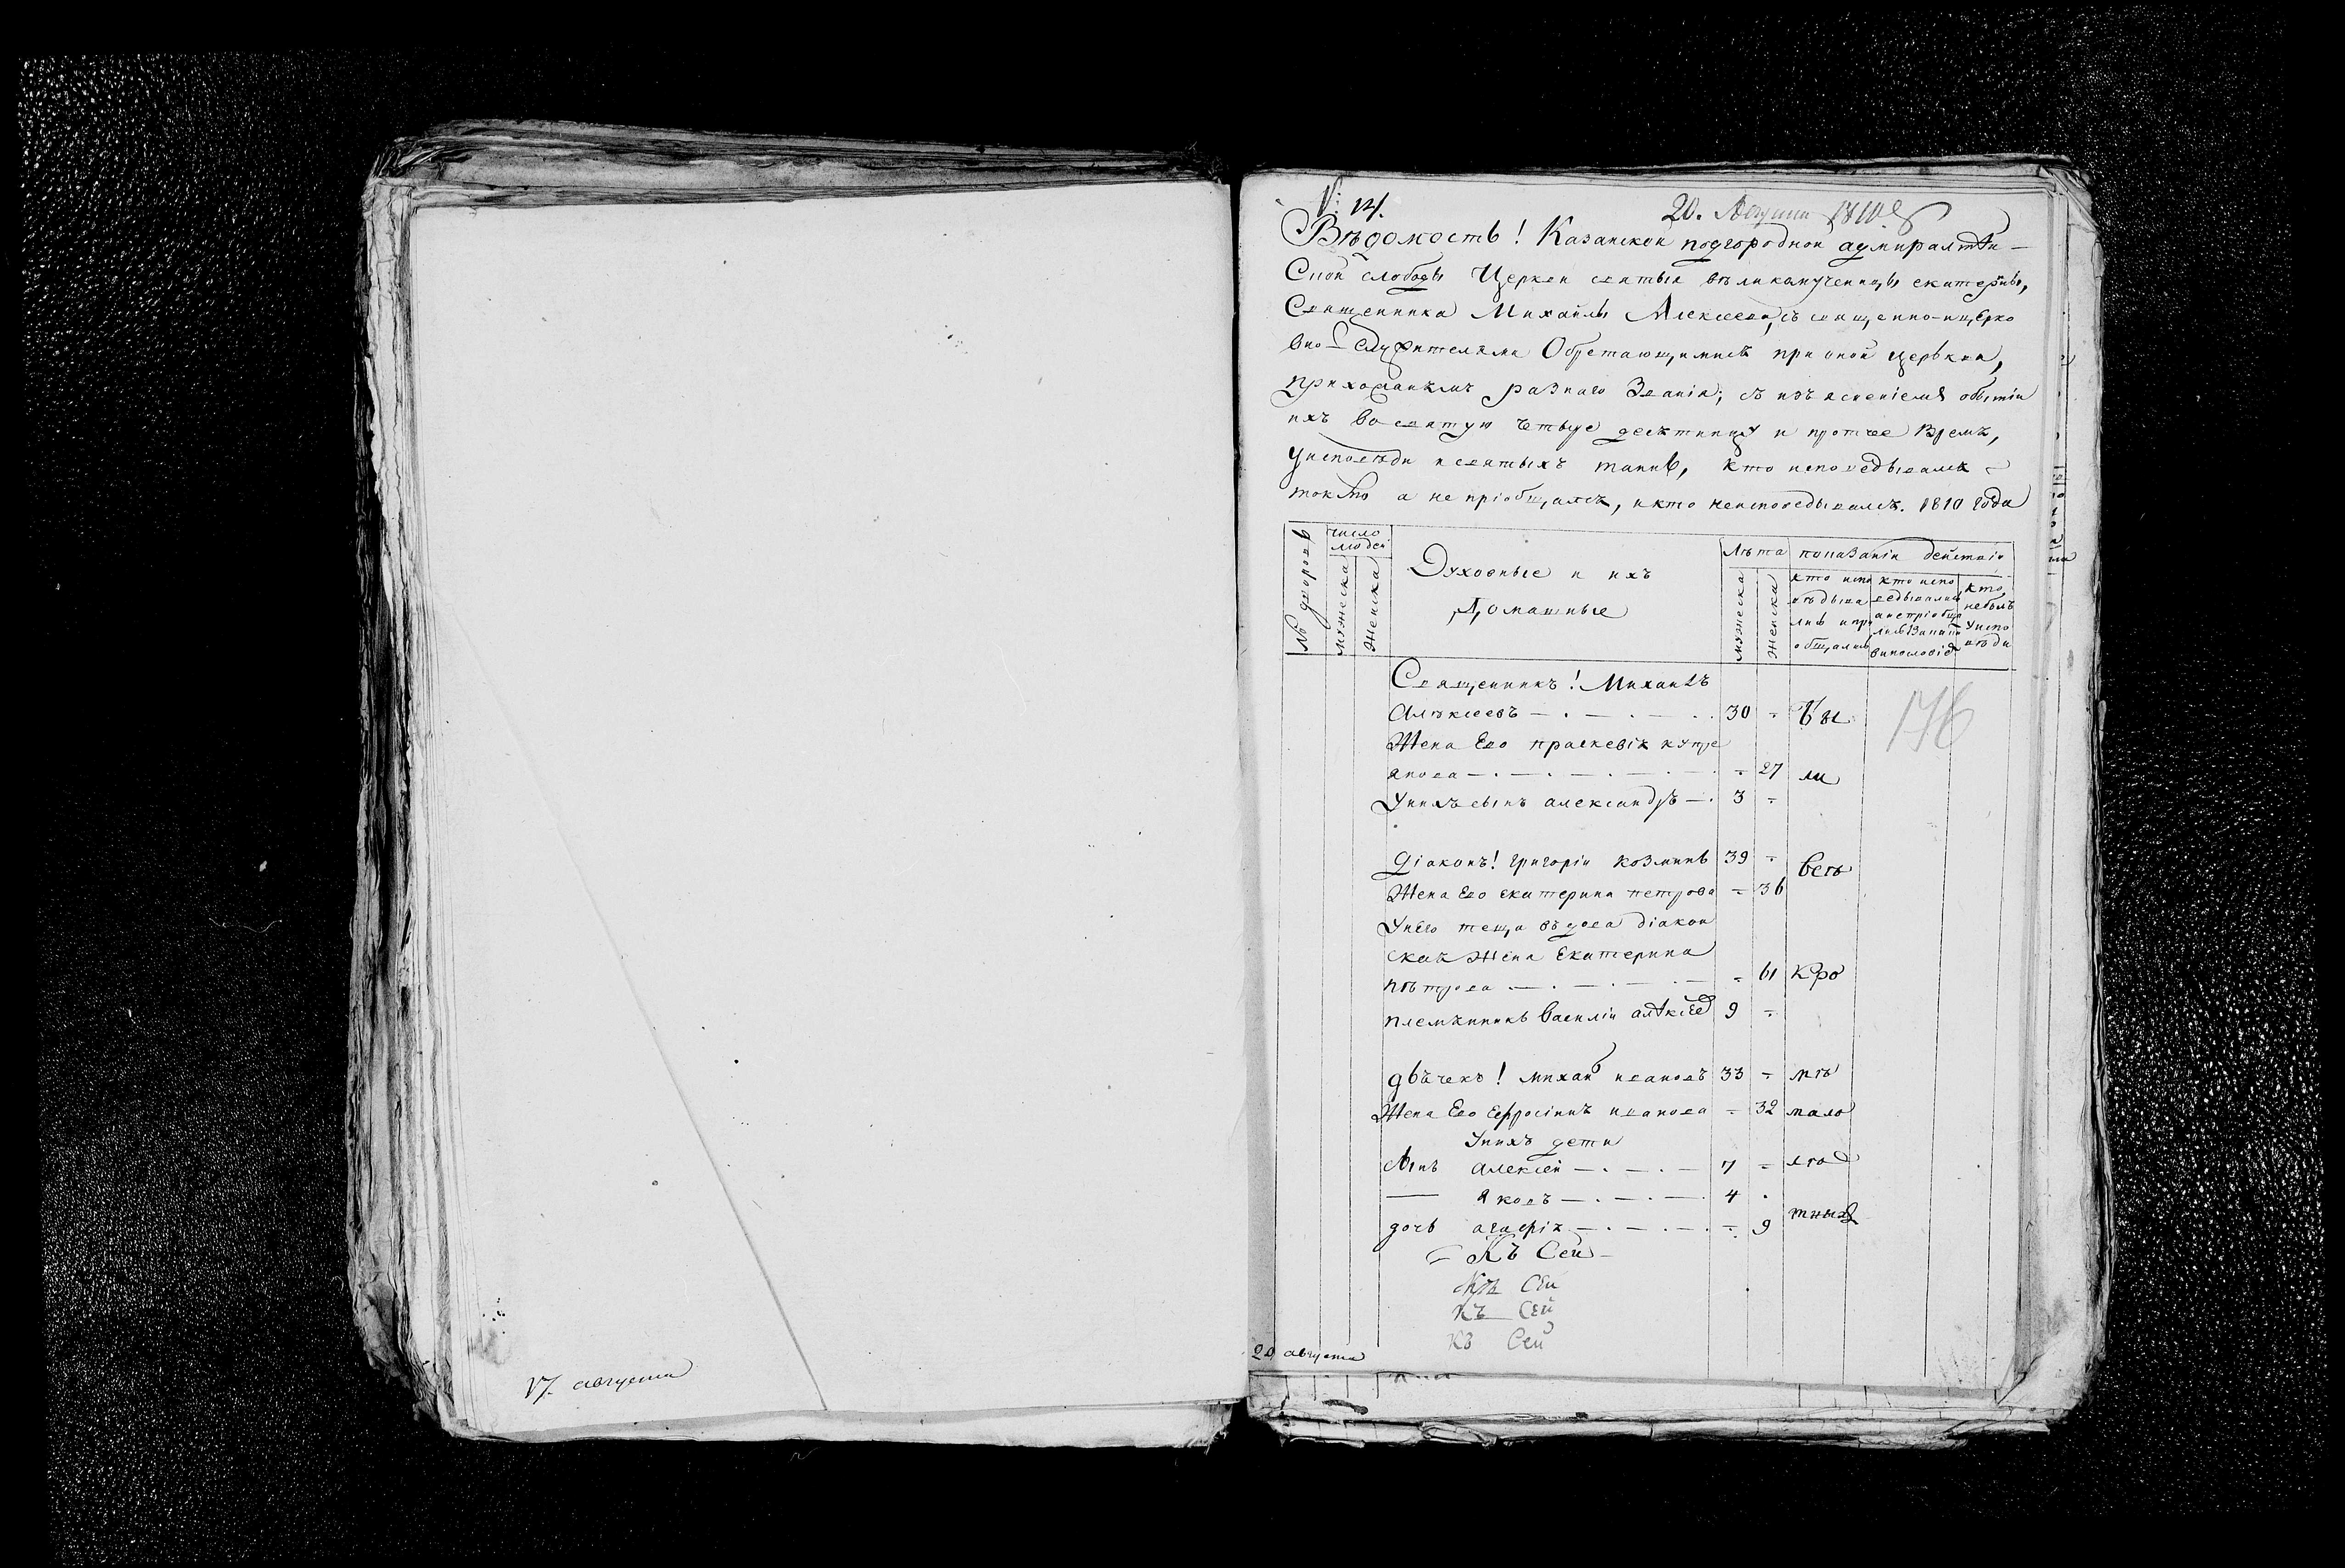 17. августа
№: 14.
20. Августа 1810.
Вѣдомость! Казанской подгородной адмиралтѣи-
Ской слободы Церкви святыя вѣликамученицы екатерины,
Священника Михаилы Алексеева, съ священно-ицерко
вно-служителями Обретающимись при оной церькви,
прихожанѣмъ разнаго Званія; съ изъясненіемъ о бытіи
ихъ во святую четыре десятницу и протчее Время,
уисповѣди исвятыхъ таинъ, кто исповедывался
токмо а не пріобщался, икто неисповедывался. 1810 года
№ дворовъ
число людей
мужеска
Женска
Духовные и ихъ
Домашные
Лѣта
мужеска
женска
показаніи действія
кто испо
вѣдыва
лись и прі
общались
кто испо
ведывались
анепріобща
лись Запис
виномовіе
кто
небылъ
Уиспо
вѣди
Священникъ! Михаилъ
Алѣксеевъ 30 Бы
176
Жена Ево праскевія купре
янова 27 ли
Унихъ сынъ александръ 3
Діаконъ! григорій козминъ 39
всѣ
Жена Ево екатерина петрова 36
Унево теща въдова діакон
ская Жена Екатерина
пѣтрова 61 Кро
племянникъ Василій алѣксѣев 9
дьячекъ! михаи ивановъ 33 мѣ
Жена Ево Ефросиния иванова 32 мало
Унихъ дети
сынъ Алексеи 7 лѣ
яковъ 4
тныхъ
дочь агафія 9
Къ Сей
Къ Сеи
Къ Сей
Къ Сей
20 августа